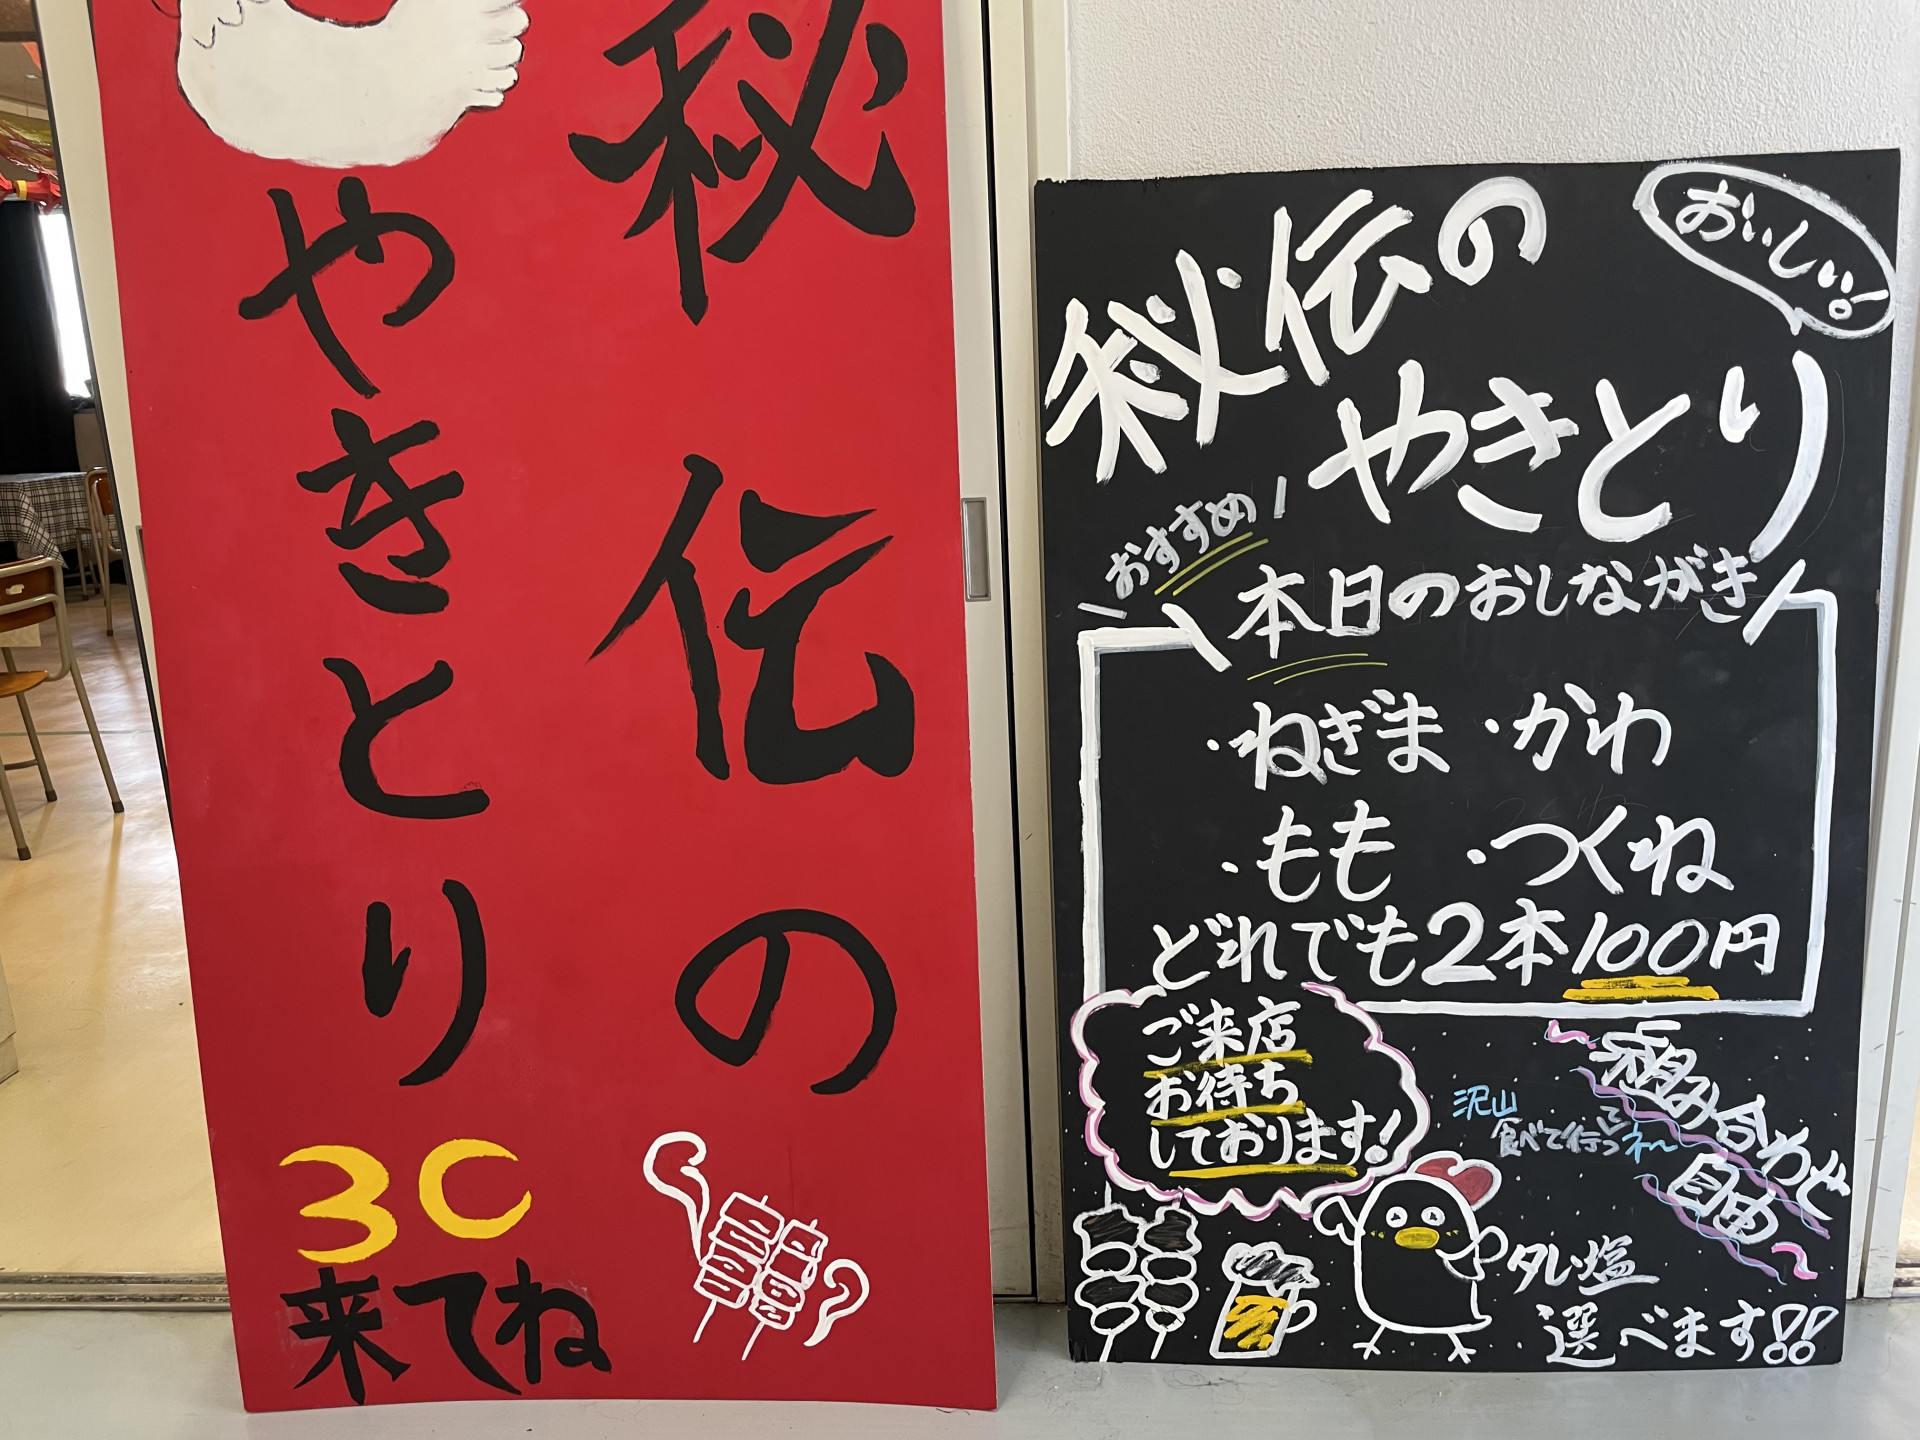 秘伝の
やきとり
3C
来てね
おいしい!
秘伝の
やきとり
おすすめ
本日のおしながき
・ねぎま ・かわ
・もも ・つくね
どれでも2本100円
ご来店
お待ち
しております!
組み合わせ
自由
沢山
食べて行って
ネ〜
タレ・塩
選べます!!